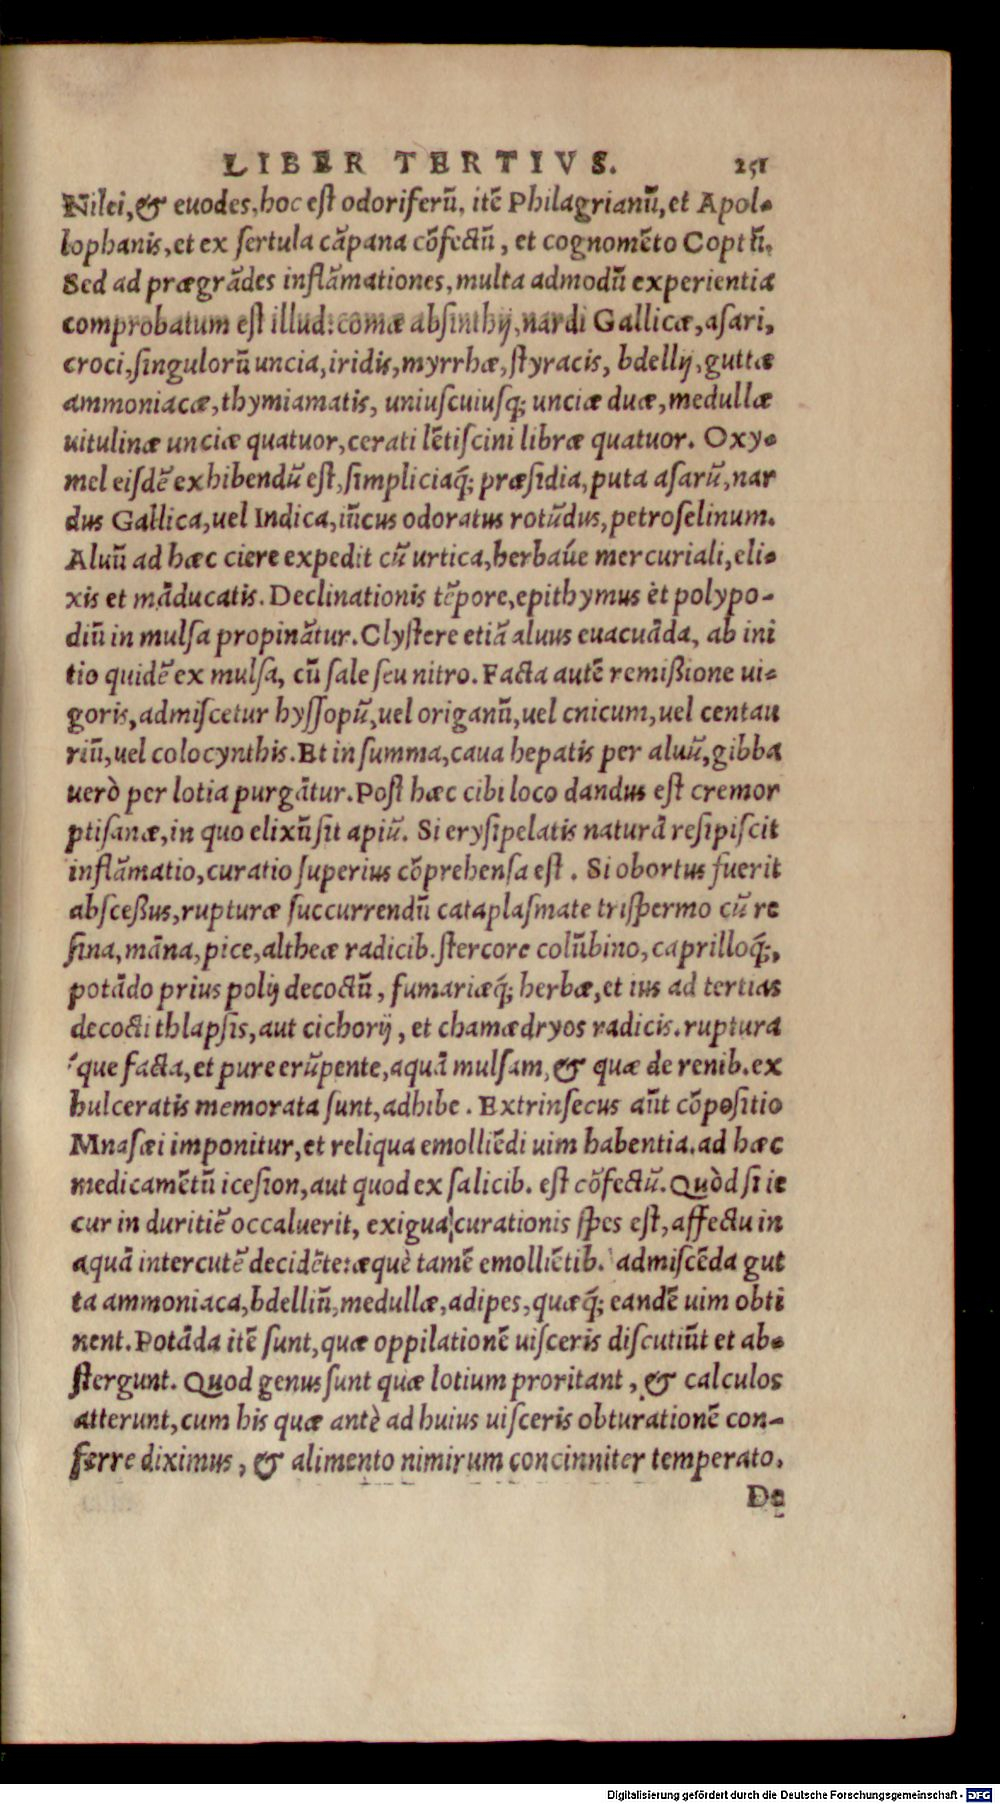 LIBER TERTIVS. 251
Nilei, & euodes, hoc est odoriferũ, itẽ Philagrianũ, et Apol-
lophanis, et ex sertula cãpana cõfectũ, et cognomẽto Coptũ.
Sed ad prægrãdes inflãmationes, multa admodũ experientia
comprobatum est illud: comæ absinthij, nardi Gallicæ, asari,
croci, singulorũ uncia, iridis, myrrhæ, styracis, bdellij, guttæ
ammoniacæ, thymiamatis, uniuscuiusq; unciæ duæ, medullæ
uitulinæ unciæ quatuor, cerati lẽtiscini libræ quatuor. Oxy-
mel eisdẽ exhibendũ est, simpliciaq́; præsidia, puta asarũ, nar
dus Gallica, uel Indica, iũcus odoratus rotũdus, petroselinum.
Aluũ ad hæc ciere expedit cũ urtica, herbaúe mercuriali, eli-
xis et mãducatis. Declinationis tẽpore, epithymus et polypo-
diũ in mulsa propinãtur. Clystere etiã aluus euacuãda, ab ini
tio quidẽ ex mulsa, cũ sale seu nitro. Facta autẽ remißione ui-
goris, admiscetur hyssopũ, uel origanũ, uel cnicum, uel centau
riũ, uel colocynthis. Et in summa, caua hepatis per aluũ, gibba
uerò per lotia purgãtur. Post hæc cibi loco dandus est cremor
ptisanæ, in quo elixũ sit apiũ. Si erysipelatis naturã resipiscit
inflãmatio, curatio superius cõprehensa est. Si obortus fuerit
absceßus, rupturæ succurrendũ cataplasmate trispermo cũ re
sina, mãna, pice, altheæ radicib. stercore colũbino, caprilloq́;,
potãdo prius polij decoctũ, fumariæq́; herbæ, et ius ad tertias
decocti thlapsis, aut cichorij, et chamædryos radicis. ruptura
que facta, et pure erũpente, aquã mulsam, & quæ de renib. ex
hulceratis memorata sunt, adhibe. Extrinsecus aũt cõpositio
Mnasæi imponitur, et reliqua emolliẽdi uim habentia. ad hæc
medicamẽtũ icesion, aut quod ex salicib. est cõfectũ. Quòd si ie
cur in duritiẽ occaluerit, exigua curationis spes est, affectu in
aquã intercutẽ decidẽte: æquè tamẽ emolliẽtib. admiscẽda gut
ta ammoniaca, bdelliũ, medullæ, adipes, quæq́; eandẽ uim obti
nent. Potãda itẽ sunt, quæ oppilationẽ uisceris discutiũt et ab-
stergunt. Quod genus sunt quæ lotium proritant, & calculos
atterunt, cum his quæ antè ad huius uisceris obturationẽ con-
ferre diximus, & alimento nimirum concinniter temperato.
De
Digitalisierung gefördert durch die Deutsche Forschungsgemeinschaft - DFG